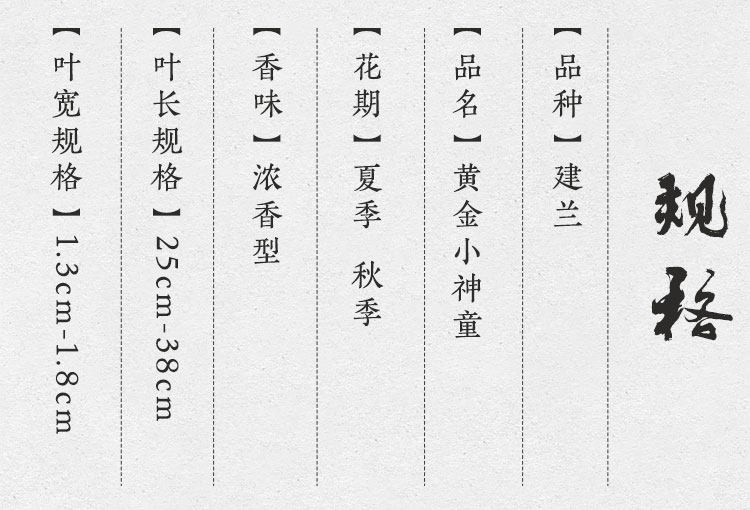 规格
【品种】建兰
【品名】黄金小神童
【花期】夏季 秋季
【香味】浓香型
【叶长规格】25cm-38cm
【叶宽规格】1.3cm-1.8cm